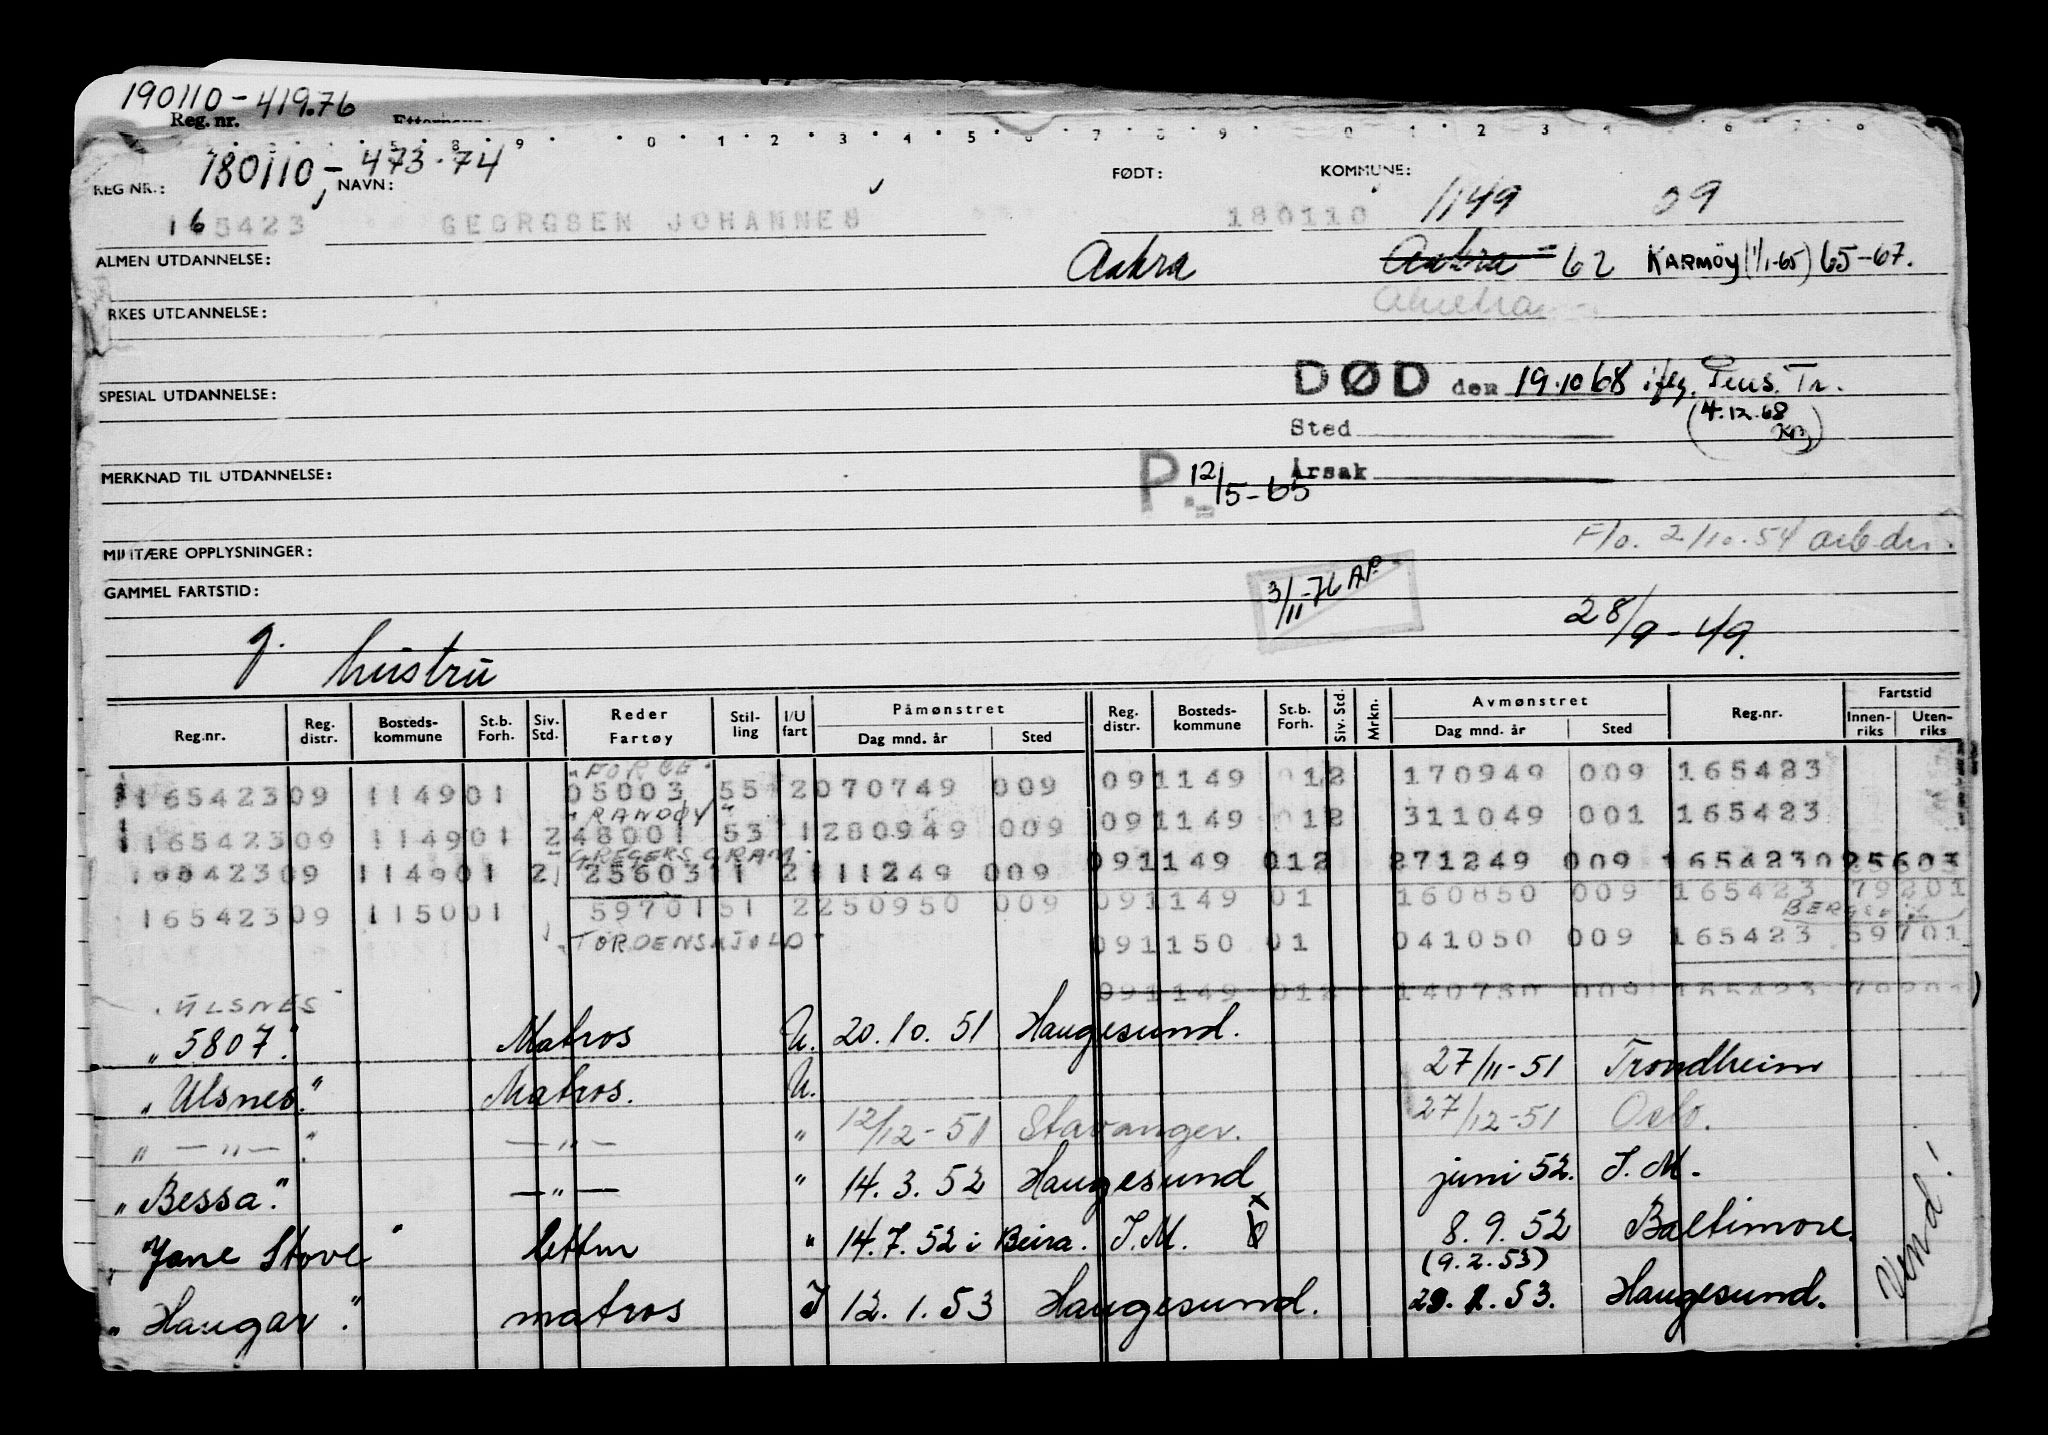 190110-419.76
Reg. nr.
180110-473.74
REG NR.: NAVN: FØDT: KOMMUNE:
165423 GEORGSEN JOHANNES 180110 1149 09
ALMEN UTDANNELSE: Aakra Aakra 62 KARMÖY (1/1-65) 65-67.
YRKES UTDANNELSE:
SPESIAL UTDANNELSE: DØD den 19.10 68 iflg. Pens. Tr.
Sted (4.12.68
MERKNAD TIL UTDANNELSE: P. 12/5-65 Årsak
MILITÆRE OPPLYSNINGER: F/o. 2/10.54
GAMMEL FARTSTID: 3/11-76 AP
28/9-49.
g. hustru
Reg.nr. Reg. distr. Bosteds- kommune St.b. Forh. Siv. Std. Reder Fartøy Stil- ling I/U fart Påmønstret Dag mnd. år Sted Reg. distr. Bosteds- kommune St.b. Forh. Siv. Std. Mrkn. Avmønstret Dag mnd. år Sted Reg.nr. Fartstid Innen- riks Uten- riks
"FORCE"
16542309 114901 05003 55 2070749 009 091149 012 170949 009 165423
"RANDØY"
16542309 114901 248001 53 1280949 009 091149 012 311049 001 165423
"GREGERS GRAM"
16542309 114901 2 25603 1 2111249 009 091149 012 271249 009 165423025603
091149 01 160850 009 165423 79201
16542309 115001 5970151 2250950 009
"TORDENSKJOLD" 091150 01 041050 009 165423 59701
"ULSNES" 091149 012 140750 009 165423 79201
"5807" Matros U. 20.10.51 Haugesund.
27/11-51 Trondheim
"Ulsnes" Matros. U.
" — " — " — " — " 12/12-51 Stavanger. 27/12-51 Oslo.
"Bessa" — " — " 14.3.52 Haugesund juni 52. I.M.
"Jane Stove" lettm " 14.7.52 i Beira. I.M. 8.9.52 Baltimore.
(9.2.53)
"Haugar" matros I 12.1.53 Haugesund. Haugesund.
Vend!